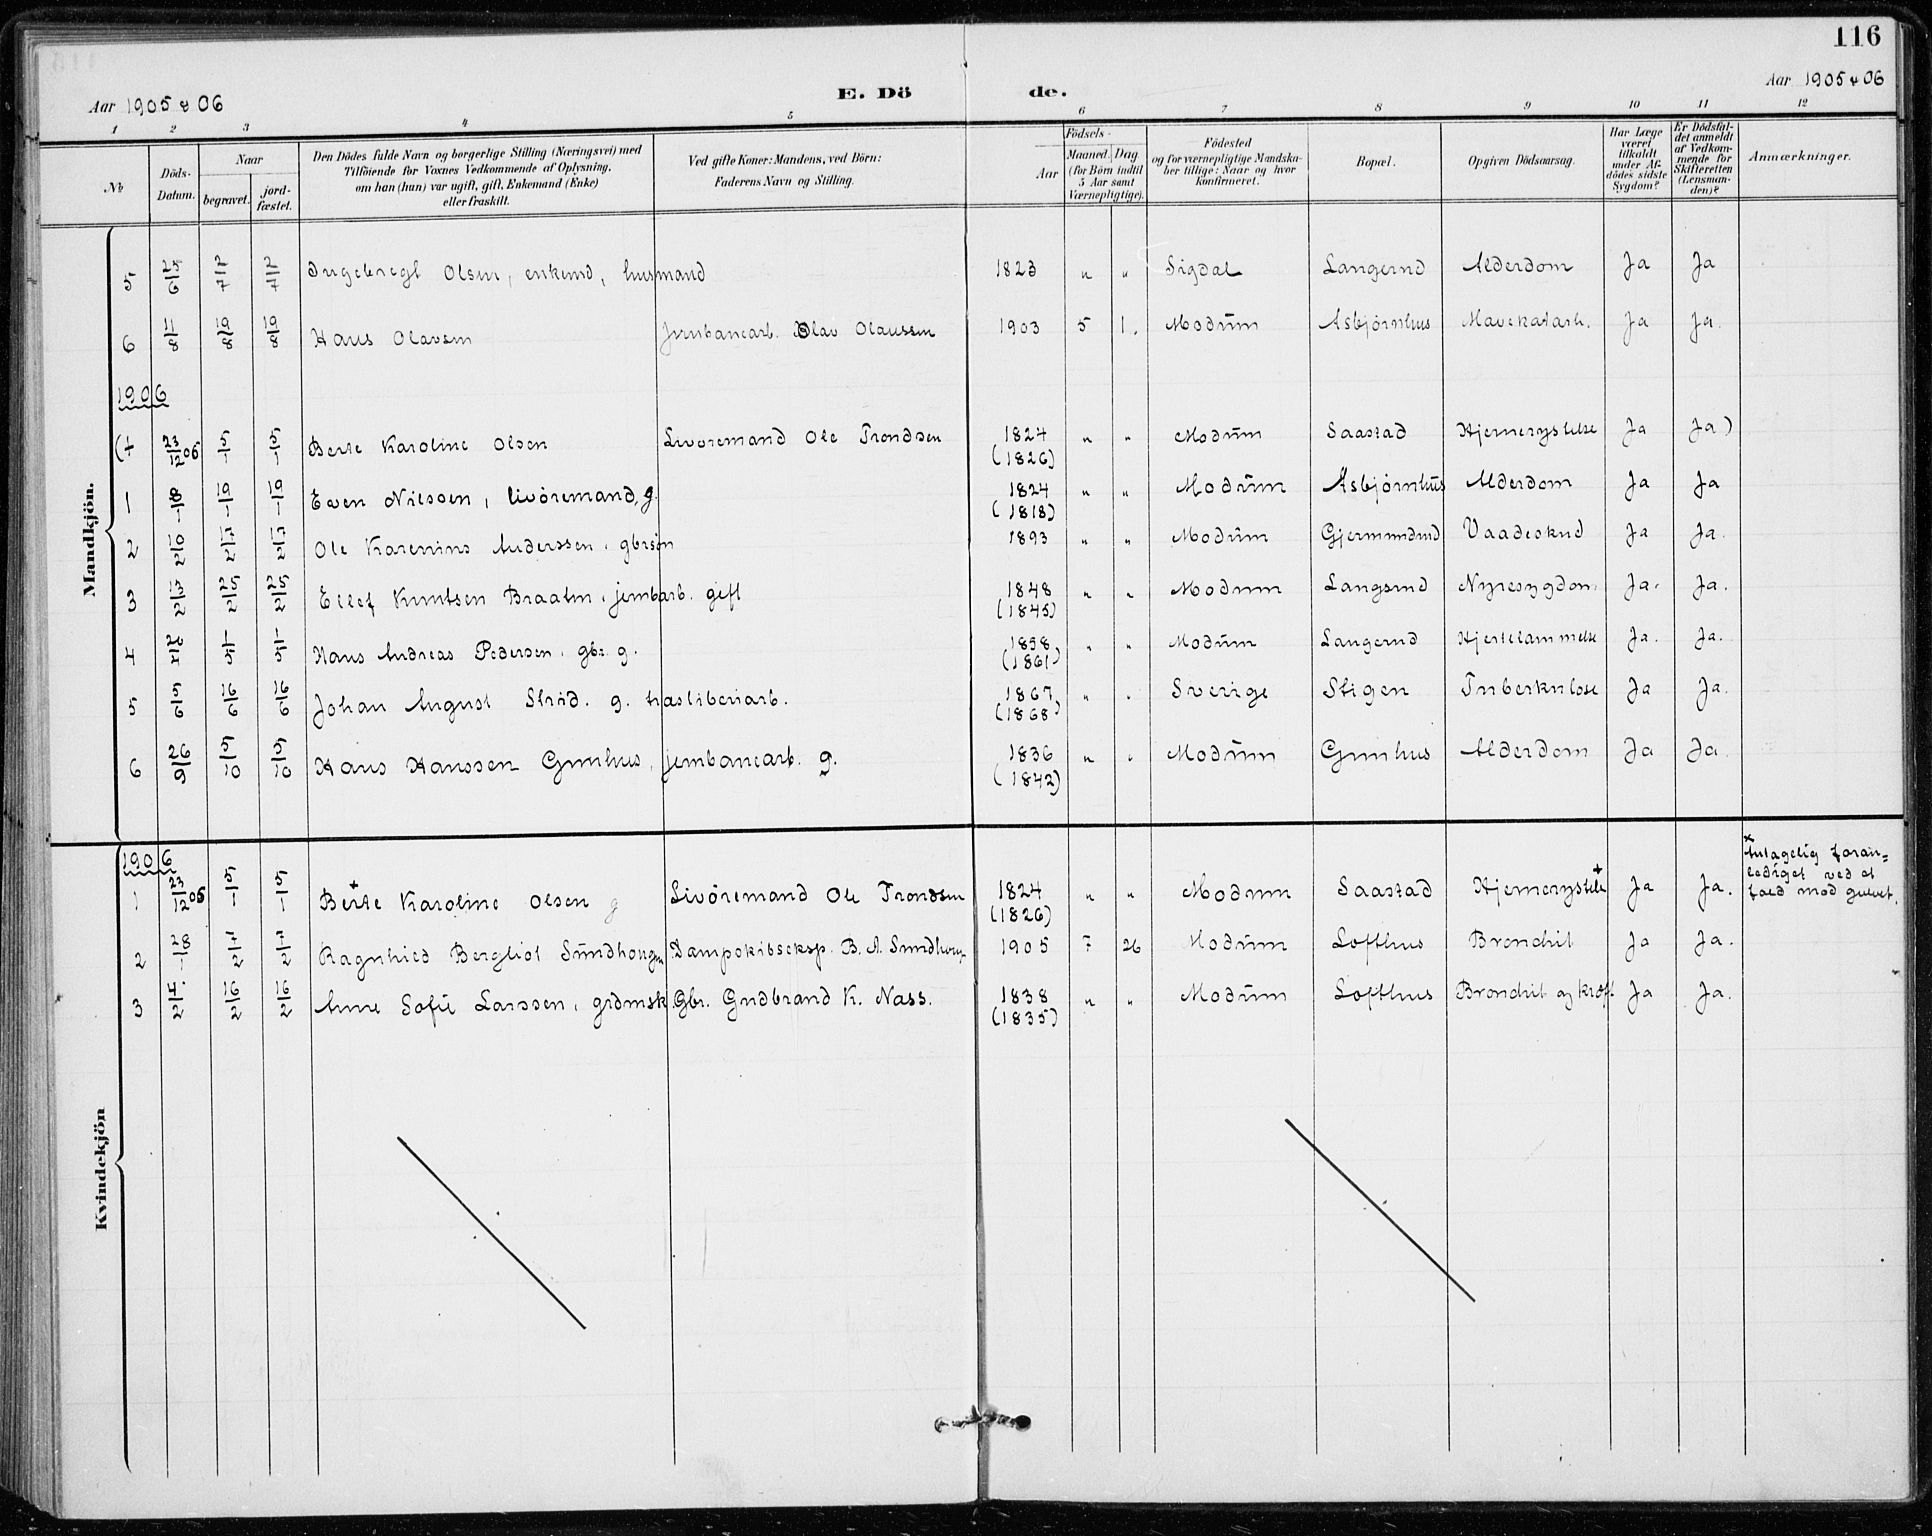 116
Aar 1905 & 06 E. Dö de. Aar 1905 & 06
1 2 3 4 5 6 7 8 9 10 11 12
№ Döds-Datum. Naar begravet. jord-fæstet. Den Dödes fulde Navn og borgerlige Stilling (Næringsvei) med Tilföiende for Voxnes Vedkommende af Oplysning, om han (hun) var ugift, gift, Enkemand (Enke) eller fraskilt. Ved gifte Koner: Mandens, ved Börn: Faderens Navn og Stilling. Födsels- Aar Maaned. Dag (for Börn indtil 5 Aar samt Værnepligtige). Födested og for værnepligtige Mandskaber tillige: Naar og hvor konfirmeret. Bopæl. Opgiven Dödsaarsag. Har Læge været tilkaldt under Afdödes sidste Sygdom? Er Dödsfaldet anmeldt af Vedkommende for Skifteretten (Lensmanden)? Anmærkninger.
Mandkjön.
5 25/6 2/7 2/7 Ingebregt Olsen, enkemd, husmand 1823 " " Sigdal Langerud Alderdom Ja Ja
6 11/8 19/8 19/8 Hans Olavsen Jernbanearb. Olav Olaussen 1903 5 1. Modum Asbjørnhus Mavekatarh. Ja Ja.
1906
(+ 23/12 05 5/1 5/1 Berte Karoline Olsen Livöremand Ole Trondsen 1824 " " Modum Saastad Hjernerystelse Ja Ja)
(1826)
1 8/1 19/1 19/1 Even Nilssen, livöremand, g. 1824 " " Modum Asbjørnhus Alderdom Ja Ja
(1818)
2 10/2 17/2 17/2 Ole Karenius Anderssen, gbrsön 1893 " " Modum Gjermundrud Vaadeskud Ja Ja.
3 13/2 25/2 25/2 Ellef Knutsen Braaten, jernbarb. gift 1848 " " Modum Langerud Nyresygdom Ja. Ja.
(1845)
4 26/4 1/5 1/5 Hans Andreas Pedersen, gbr. g. 1858 " " Modum Langerud Hjertelammelse Ja. Ja.
(1861)
5 5/6 16/6 16/6 Johan August Strid. g. træsliberiarb. 1867 " " Sverige Stigen Tuberkulose Ja Ja.
(1868)
6 26/9 5/10 5/10 Hans Hanssen Gunhus, jernbanearb. g. 1836 " " Modum Gunhus Alderdom Ja Ja.
(1842)
Kvindekjön
1906
1 23/12 05 5/1 5/1 Berte Karoline Olsen g Livöremand Ole Trondsen 1824 " " Modum Saastad Hjernerystelse + Ja Ja. × Antagelig foran=
(1826) lediget ved et
fald mod gulvet.
2 28/1 7/2 7/2 Ragnhild Bergliot Sundhougen Dampskibseksp. B. A. Sundhougen 1905 7 26 Modum Lofthus Bronchit Ja Ja.
3 4/2 16/2 16/2 Anne Sofie Larssen, grdmsk. Gbr. Gudbrand K. Nass. 1838 " " Modum Lofthus Bronchit og kræft Ja Ja.
(1835)